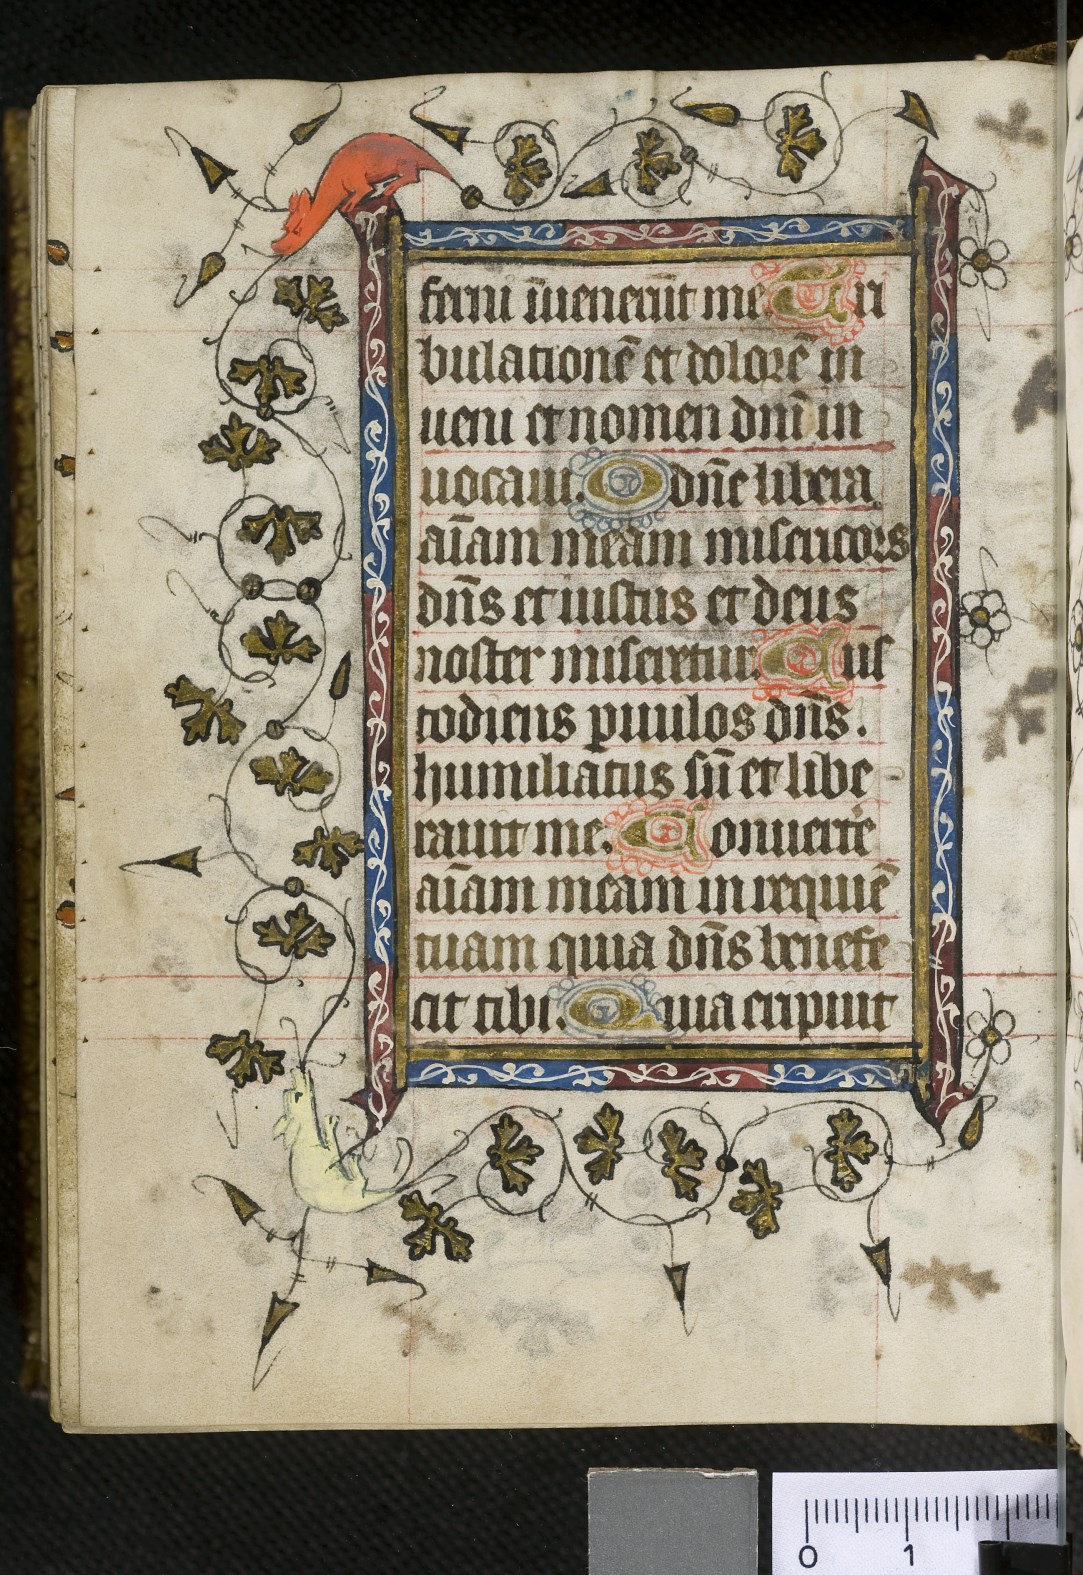 ferni īuenerūt me Tri
bulationē et dolorē in
ueni et nomen dnī in
uocaui. O dn̄e libera
aīam meam misericors
dn̄s et iustus et deus
noster miseretur. Cus
todiens puulos dn̄s.
humiliatus sū et libe
rauit me. Conuerte
aīam meam in requiē
tuam quia dn̄s benefe
cit tibi. Quia eripuit
0 1